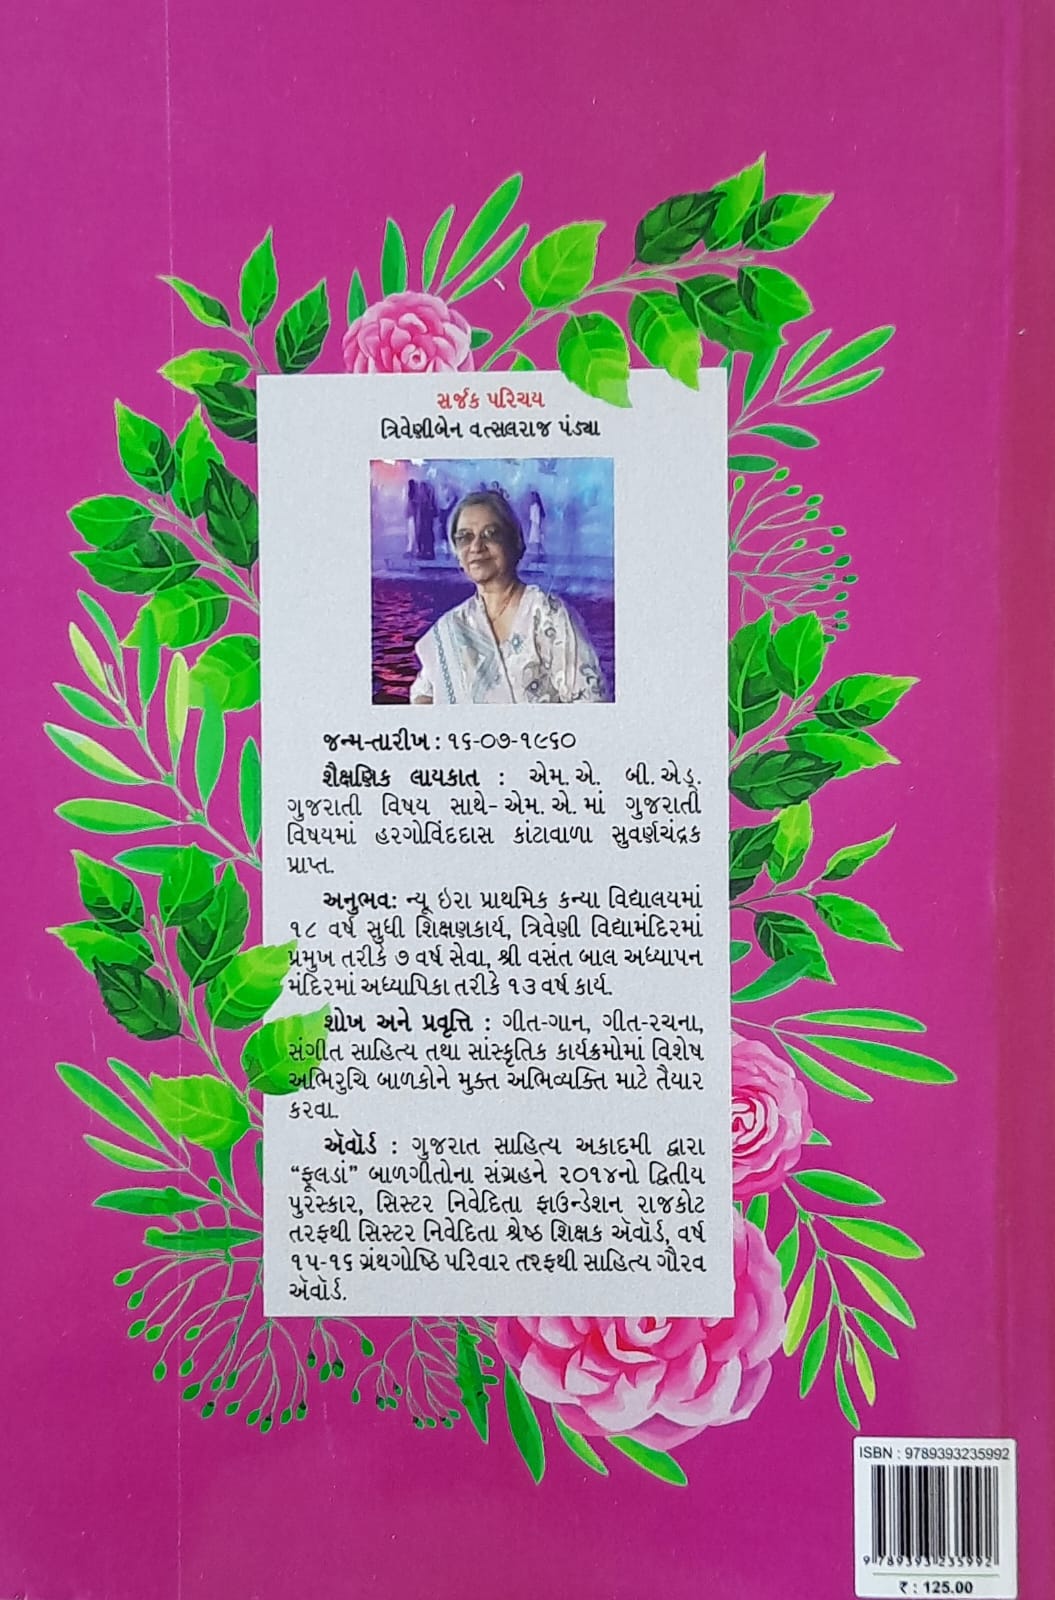 સર્જક પરિચય
ત્રિવેણીબેન વત્સલરાજ પંડ્યા
જન્મ-તારીખ : ૧૬-૦૭-૧૯૬૦
શૈક્ષણિક લાયકાત : એમ. એ. બી. એડ્.
ગુજરાતી વિષય સાથે- એમ. એ. માં ગુજરાતી
વિષયમાં હરગોવિંદદાસ કાંટાવાળા સુવર્ણચંદ્રક
પ્રાપ્ત.
અનુભવ: ન્યૂ ઇરા પ્રાથમિક કન્યા વિદ્યાલયમાં
૧૮ વર્ષ સુધી શિક્ષણકાર્ય, ત્રિવેણી વિદ્યામંદિરમાં
પ્રમુખ તરીકે ૭ વર્ષ સેવા, શ્રી વસંત બાલ અધ્યાપન
મંદિરમાં અધ્યાપિકા તરીકે ૧૩ વર્ષ કાર્ય.
શોખ અને પ્રવૃત્તિ : ગીત-ગાન, ગીત-રચના,
સંગીત સાહિત્ય તથા સાંસ્કૃતિક કાર્યક્રમોમાં વિશેષ
અભિરુચિ બાળકોને મુક્ત અભિવ્યક્તિ માટે તૈયાર
કરવા.
ઍવૉર્ડ : ગુજરાત સાહિત્ય અકાદમી દ્વારા
“ફૂલડાં” બાળગીતોના સંગ્રહને ૨૦૧૪નો દ્વિતીય
પુરસ્કાર, સિસ્ટર નિવેદિતા ફાઉન્ડેશન રાજકોટ
તરફથી સિસ્ટર નિવેદિતા શ્રેષ્ઠ શિક્ષક ઍવૉર્ડ, વર્ષ
૧૫-૧૬ ગ્રંથગોષ્ઠિ પરિવાર તરફથી સાહિત્ય ગૌરવ
ઍવૉર્ડ.
ISBN : 9789393235992
9 789393 235992
₹ : 125.00